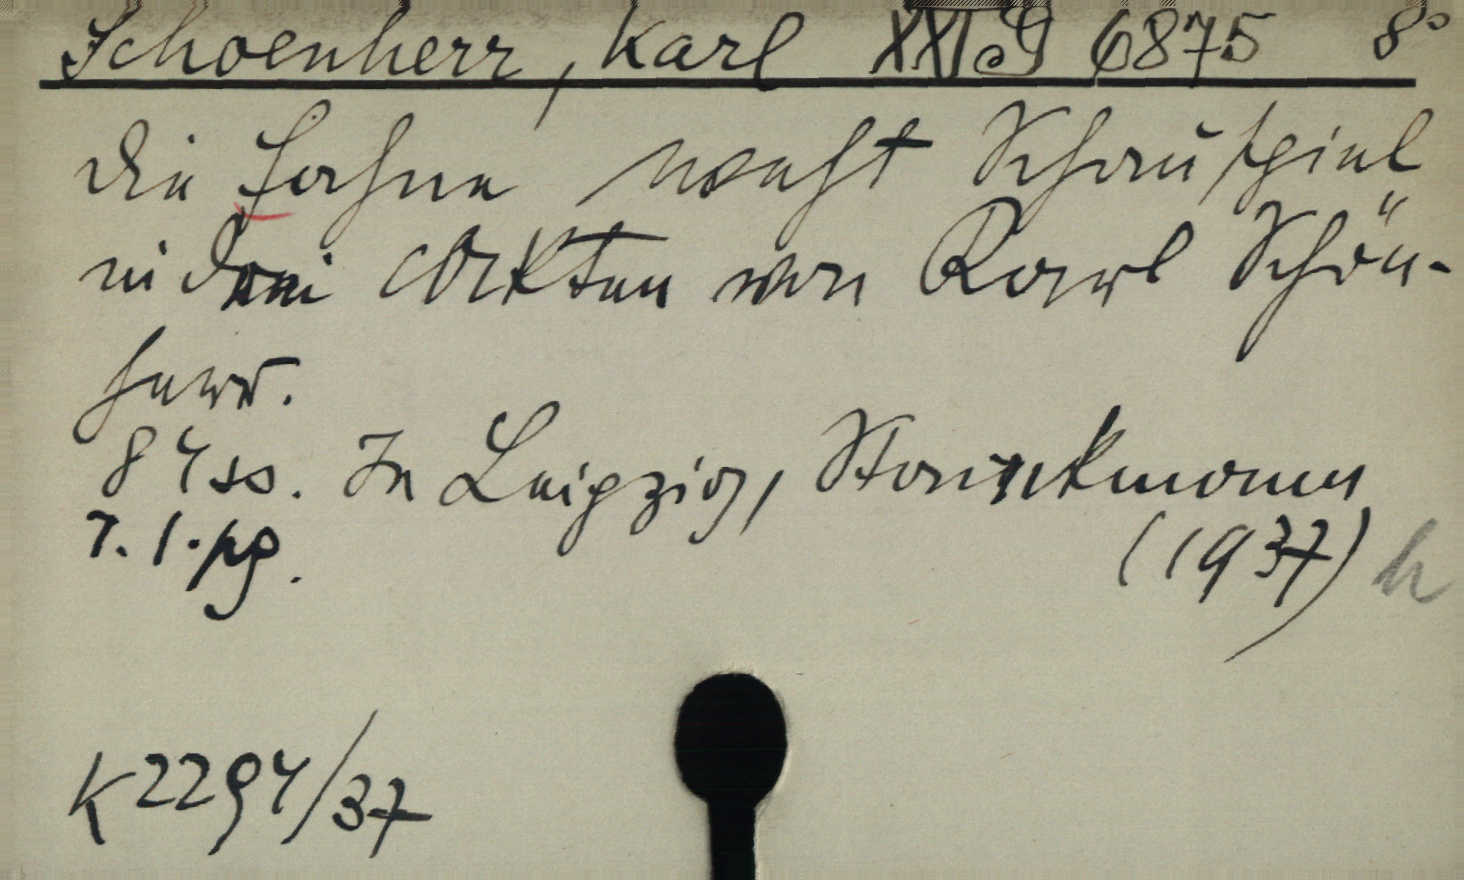 Schoenherr, Karl XXI D 6875 8°
Die Fahne weht Schauspiel
in drei Akten von Karl Schön-
herr.
84 ss. In Leipzig, Staackmann
7. 1. pg. (1937) h
K 2294/37